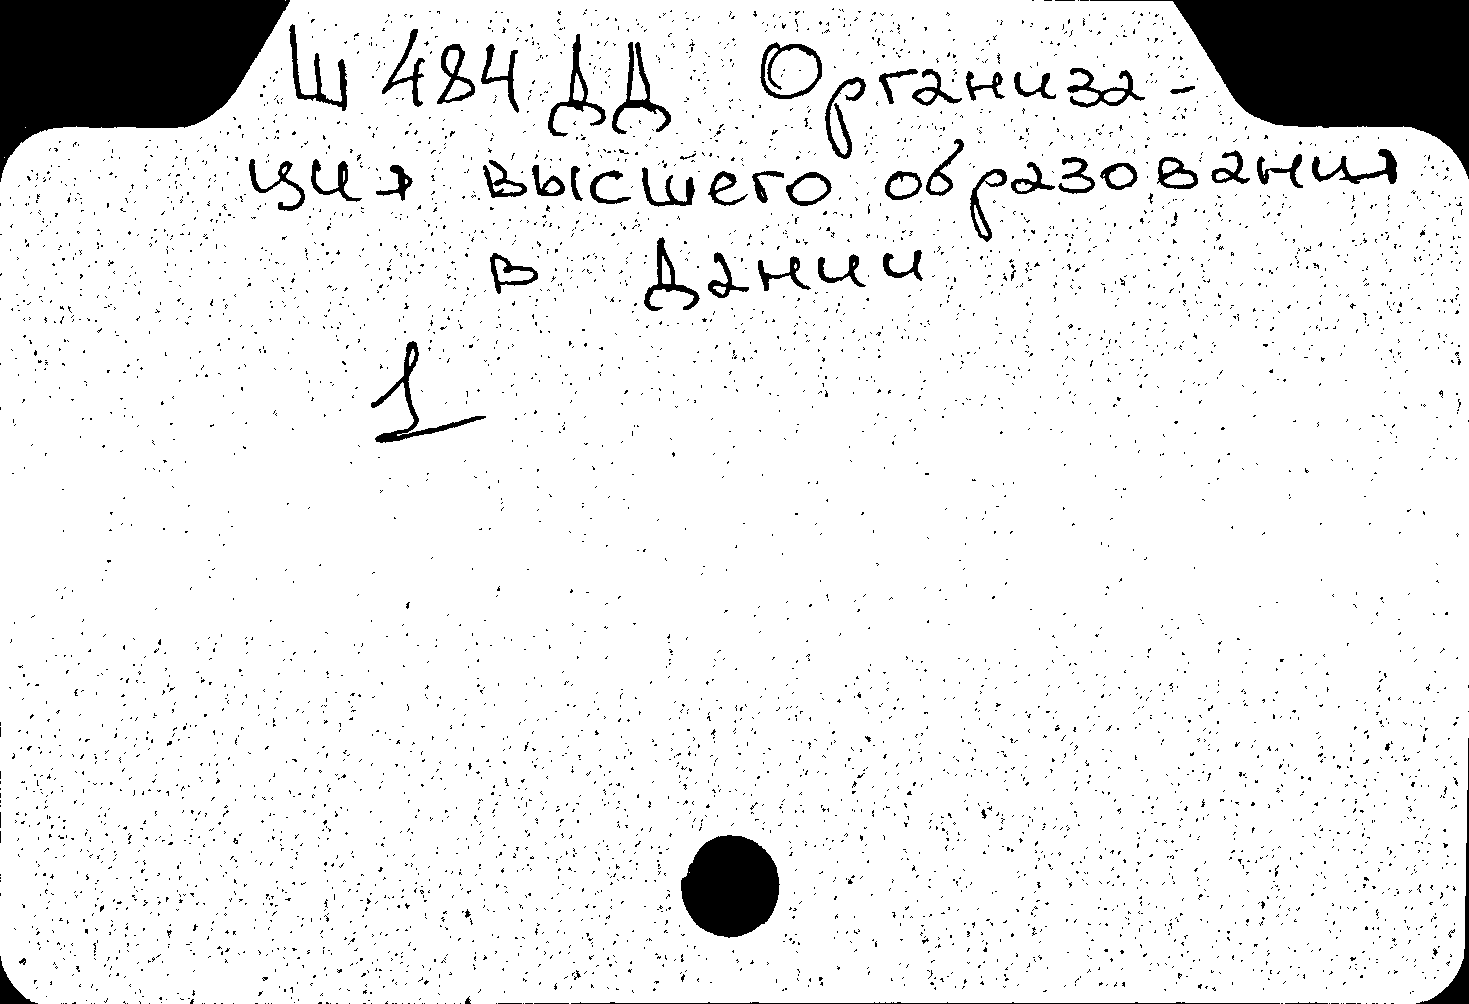 Ш 484 ДД Организа-
ция высшего образования
в Дании
1